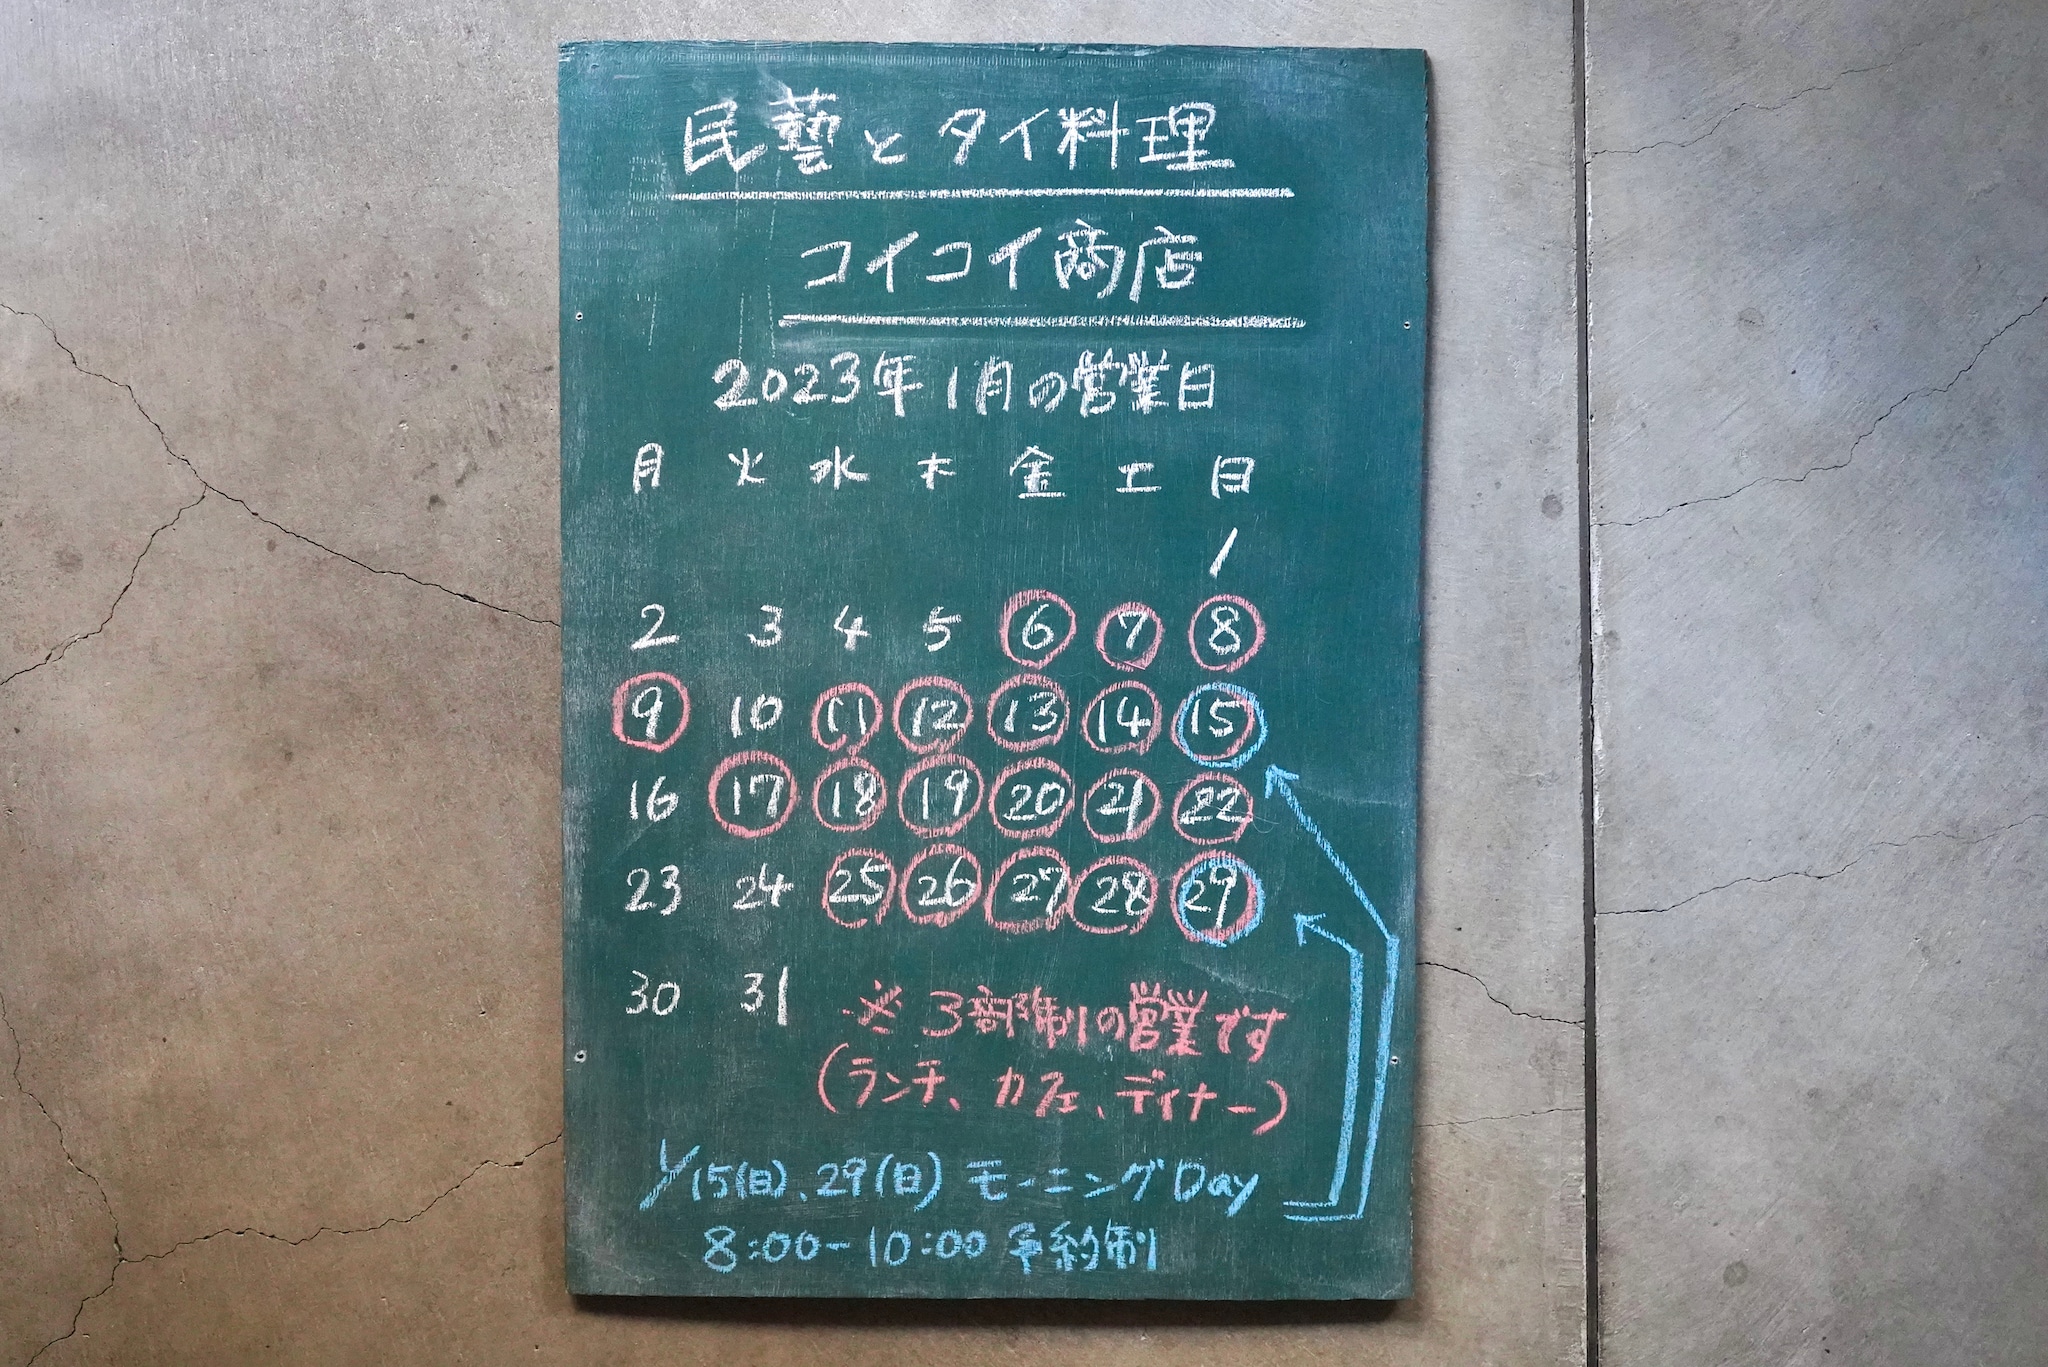 民藝とタイ料理
コイコイ商店
2023年1月の営業日
月 火 水 木 金 土 日
1
2 3 4 5 6 7 8
9 10 11 12 13 14 15
16 17 18 19 20 21 22
23 24 25 26 27 28 29
30 31
※3部制の営業です
(ランチ、カフェ、ディナー)
1/15(日)、29(日)モーニングDay
8:00-10:00 予約制